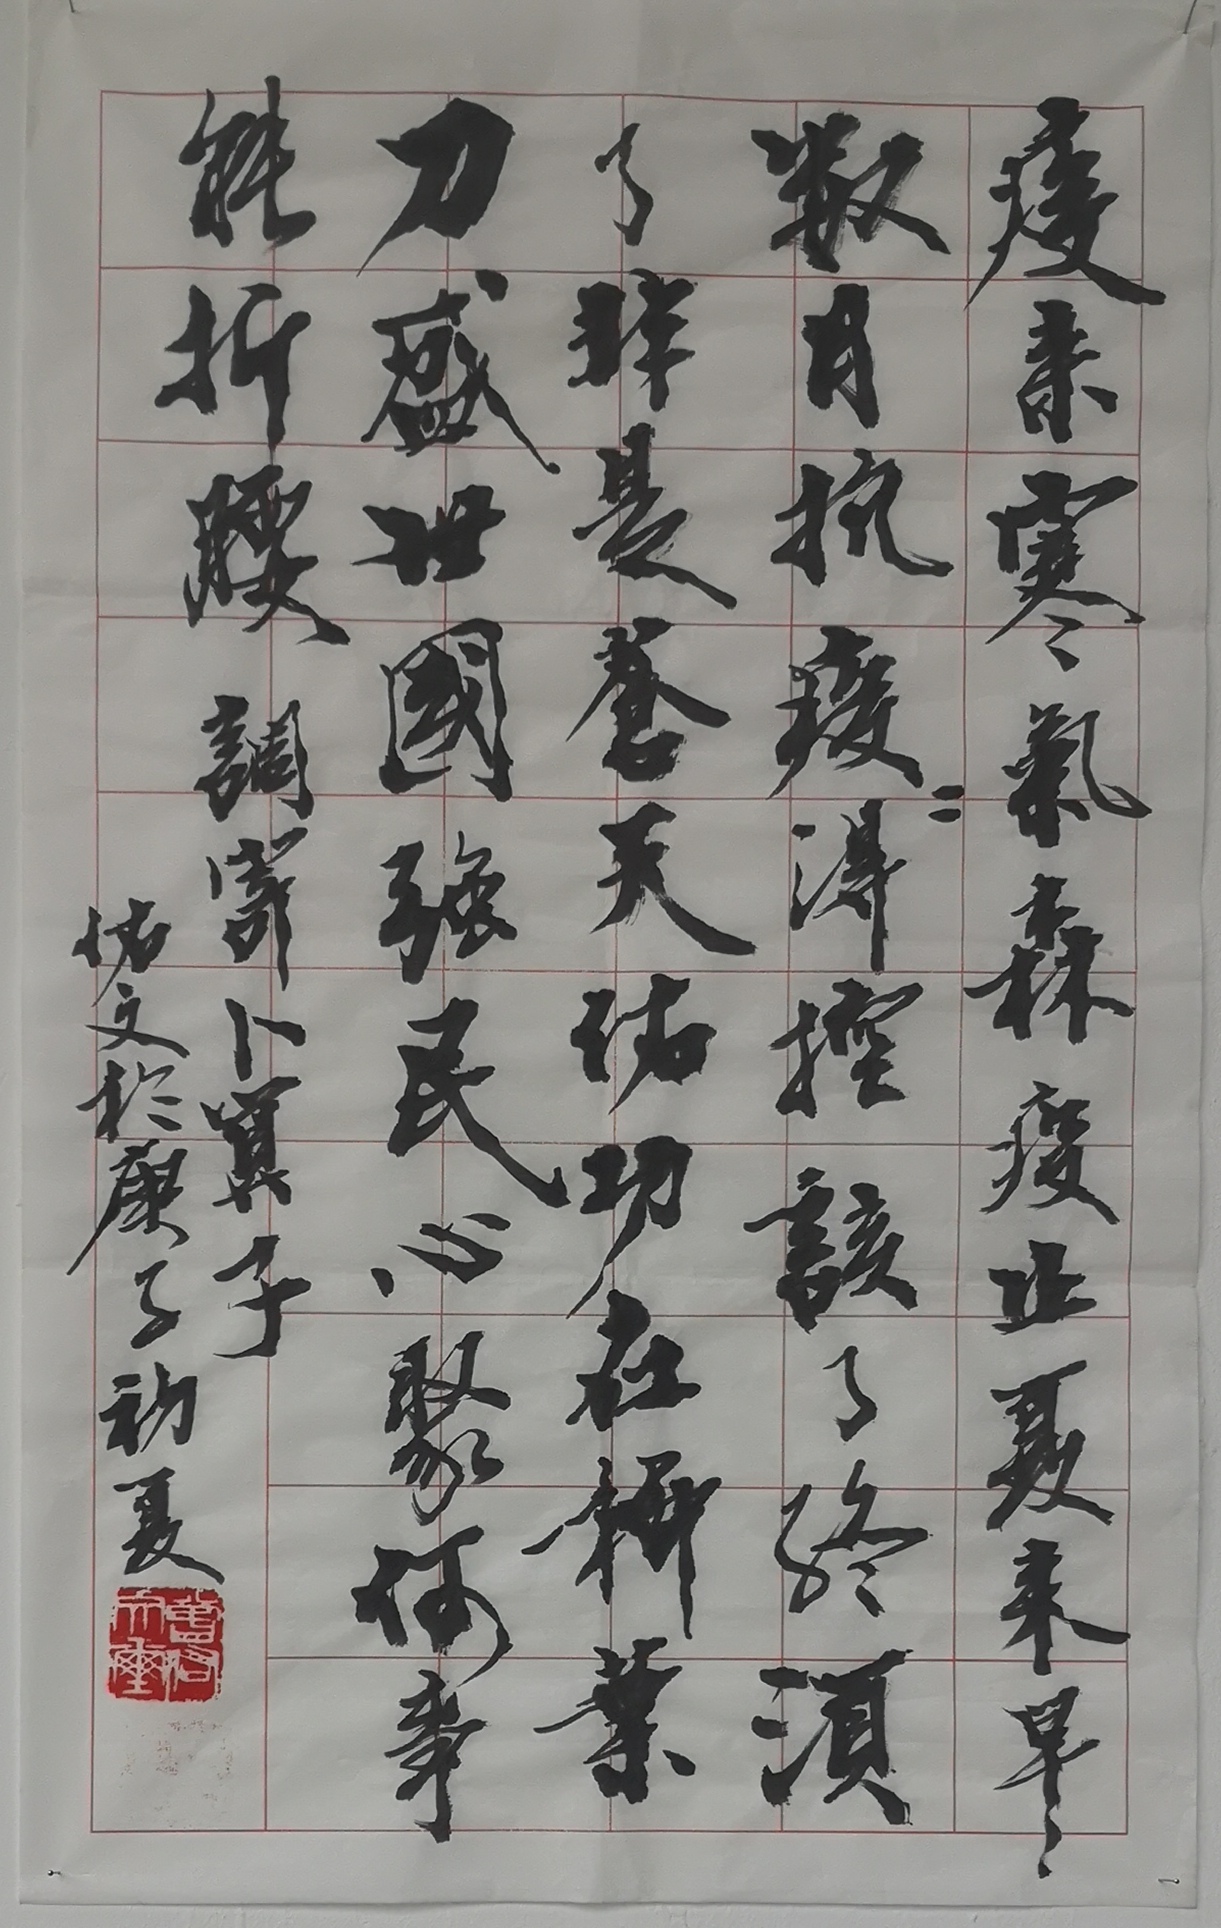 疫来寒氣森疫止夏来早
数月抗疫〻得控該了終須
了非是蒼天佑功在業
力盛世國强民心聚何事
能折腰 調寄卜算子
佑文於庚子初夏